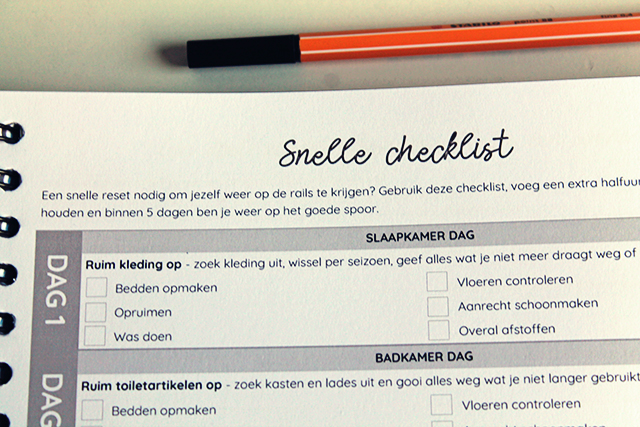 STABILO
Snelle checklist
Een snelle reset nodig om jezelf weer op de rails te krijgen? Gebruik deze checklist, voeg een extra halfuur
houden en binnen 5 dagen ben je weer op het goede spoor.
DAG 1
SLAAPKAMER DAG
Ruim kleding op - zoek kleding uit, wissel per seizoen, geef alles wat je niet meer draagt weg of
Bedden opmaken
Vloeren controleren
Opruimen
Aanrecht schoonmaken
Was doen
Overal afstoffen
DAG
BADKAMER DAG
Ruim toiletartikelen op - zoek kasten en lades uit en gooi alles weg wat je niet langer gebruikt
Bedden opmaken
Vloeren controleren